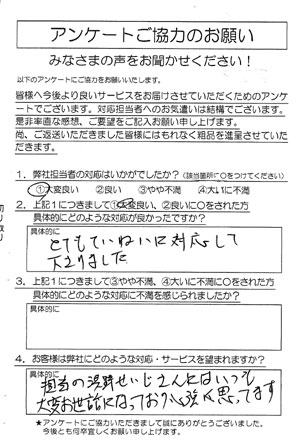 アンケートご協力のお願い
みなさまの声をお聞かせください！
以下のアンケートにご協力をお願いいたします。
皆様へ今後より良いサービスをお届けさせていただくためのアンケ
ートでございます。対応担当者へのお気遣いは結構でございます。
是非率直な感想、ご要望をご記入お願い申し上げます。
尚、ご返送いただきました皆様にはもれなく粗品を進呈させていた
だきます。
1．弊社担当者の対応はいかがでしたか？（該当箇所に○をつけてください）
①大変良い ②良い ③やや不満 ④大いに不満
2．上記1につきまして①大変良い、②良いに○をされた方
具体的にどのような対応が良かったですか？
具体的に
とてもていねいに対応して
下さりました
3．上記1につきまして③やや不満、④大いに不満に○をされた方
具体的にどのような対応に不満を感じられましたか？
具体的に
4．お客様は弊社にどのような対応・サービスを望まれますか？
具体的に
担当の せいじさんにはいつも
大変お世話になっており 思ってます
★アンケートにご協力いただきまして誠にありがとうございました。
今後とも何卒宜しくお願い申し上げます。
切り取り